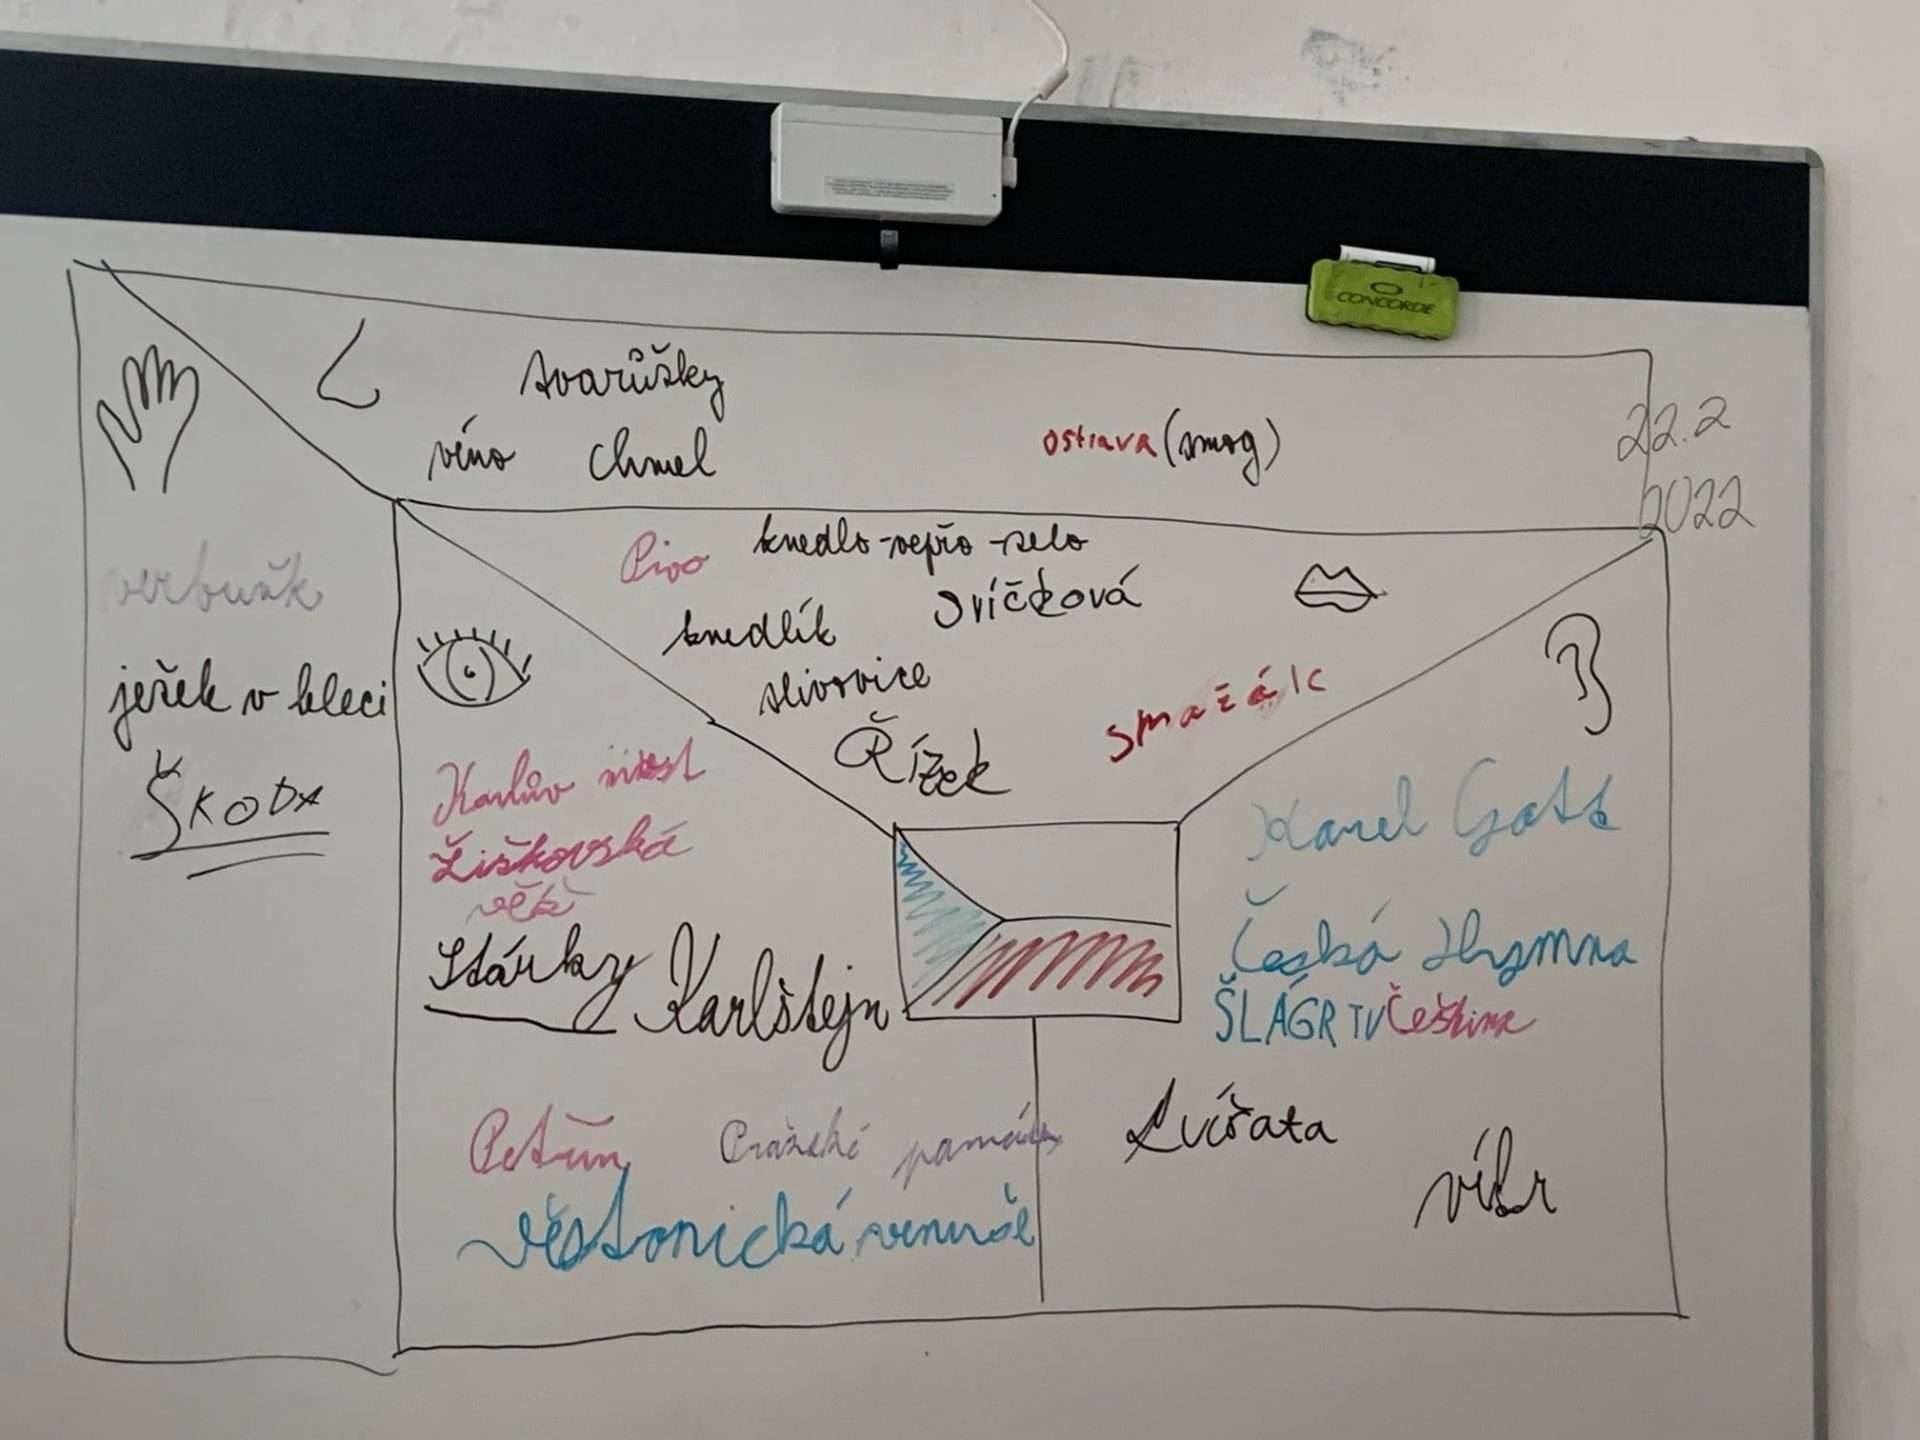 CONCORDE
tvarůžky
víno chmel
ostrava (smog)
22.2
2022
Pivo knedlo-vepřo-zelo
knedlík svíčková
slivovice
Řízek
smažák
verbuňk
ježek v kleci
ŠKODA
Karlův most
Žižkovská
věž
Stárky Karlštejn
Petřín Pražské památky
věstonická venuše
Karel Gott
Česká Hymna
ŠLÁGR TV Čeština
Zvířata